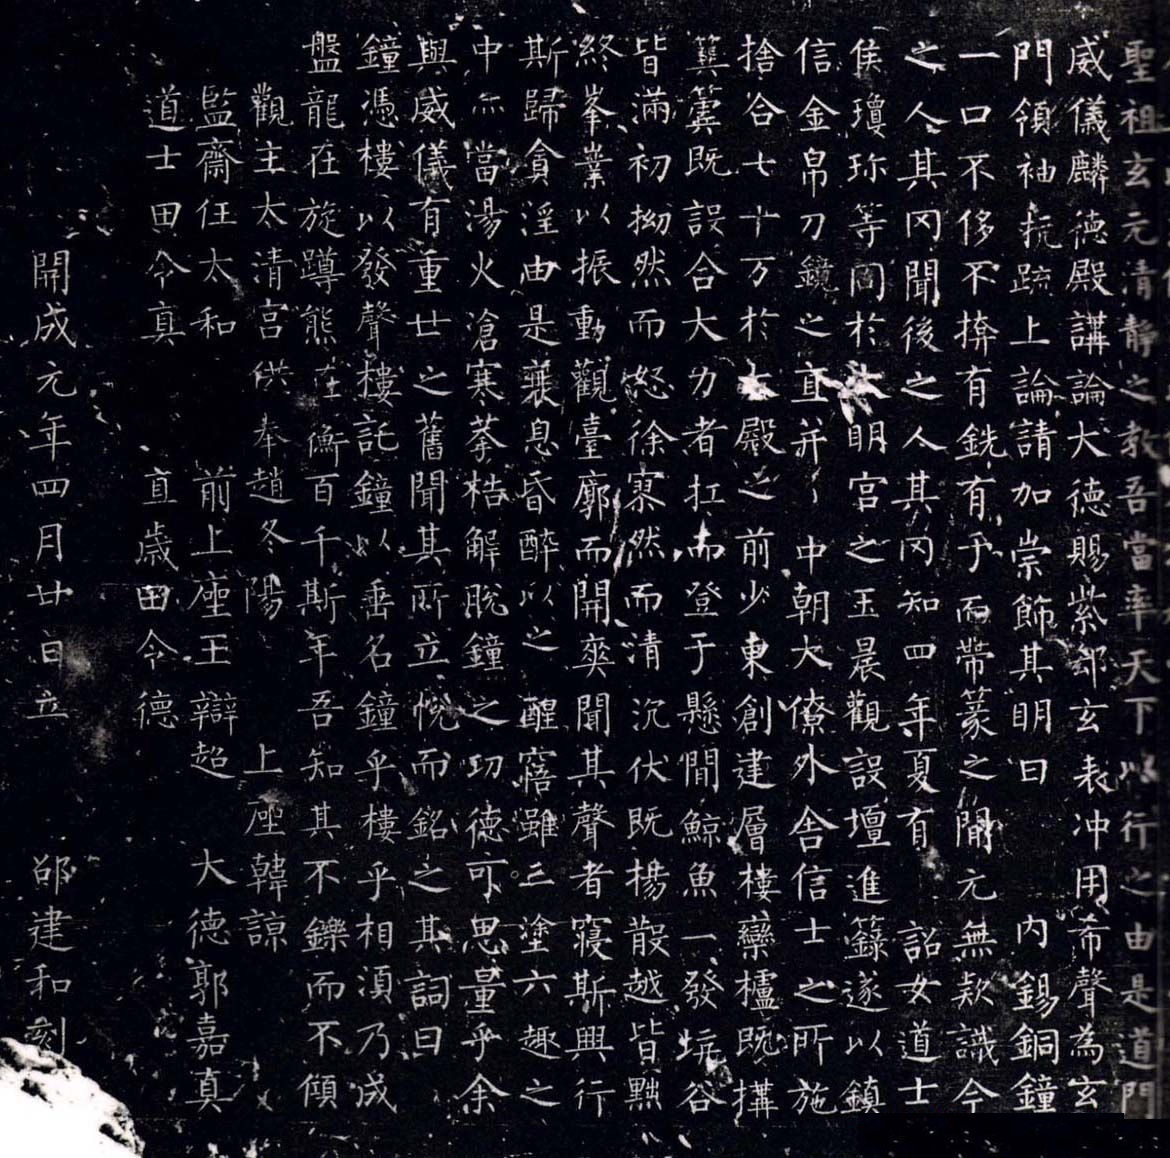 聖祖玄元清靜之教吾當率天下以行之由是道門
威儀麟德殿講論大德賜紫郤玄表冲用希聲為玄
門領袖抗疏上論請加崇飾其明曰 內錫銅鐘
一口不侈不撿有銑有于而帶篆之間元無款識今
之人其罔聞後之人其罔知四年夏有 詔女道士
侯瓊珎等同於大明宮之玉晨觀設壇進籙遂以鎮
信金帛刀鏡之直并中朝大僚外舍信士之所施
捨合七十万於大殿之前少東創建層樓欒櫨既搆
簨簴既設合大力者扛而登于懸間鯨魚一發坑谷
皆滿初拗然而怒徐寥然而清沉伏既楊散越皆黜
終峯業以振動觀臺廓而開奕聞其聲者寢斯興行
斯歸貪淫由是衰息昏醉以之醒寤雖三塗六趣之
中亦當湯火滄寒拲梏解脫鐘之功德可思量乎余
與威儀有重世之舊聞其所立悅而銘之其詞曰
鐘憑樓以發聲樓託鐘以垂名鐘乎樓乎相須乃成
盤龍在旋蹲熊在衡百千斯年吾知其不鑠而不傾
觀主太清宮供奉趙冬陽 上座韓諒
監齋任太和 前上座王辯超 大德郭嘉真
道士田令真 直歲田令德
開成元年四月廿日立 邵建和刻